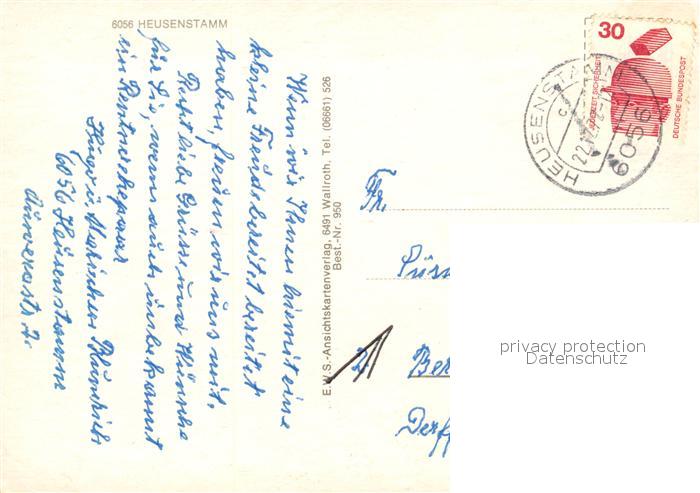 6056 HEUSENSTAMM
Wenn wir Ihnen hiermit eine
kleine Freude bereitet
haben, freuen wir uns mit.
Recht liebe Grüsse und Wünsche
für Sie, wenn auch unbekannt
ein Rentnerehepaar
Hugo u.
6056 Heusenstamm
E.W.S.-Ansichtskartenverlag, 6491 Wallroth, Tel. (06661) 526
Best.-Nr. 950
30
JEDERZEIT SICHERHEIT
DEUTSCHE BUNDESPOST
HEUSENSTAMM
6056
c
Fr.
Ber
privacy protection
Datenschutz